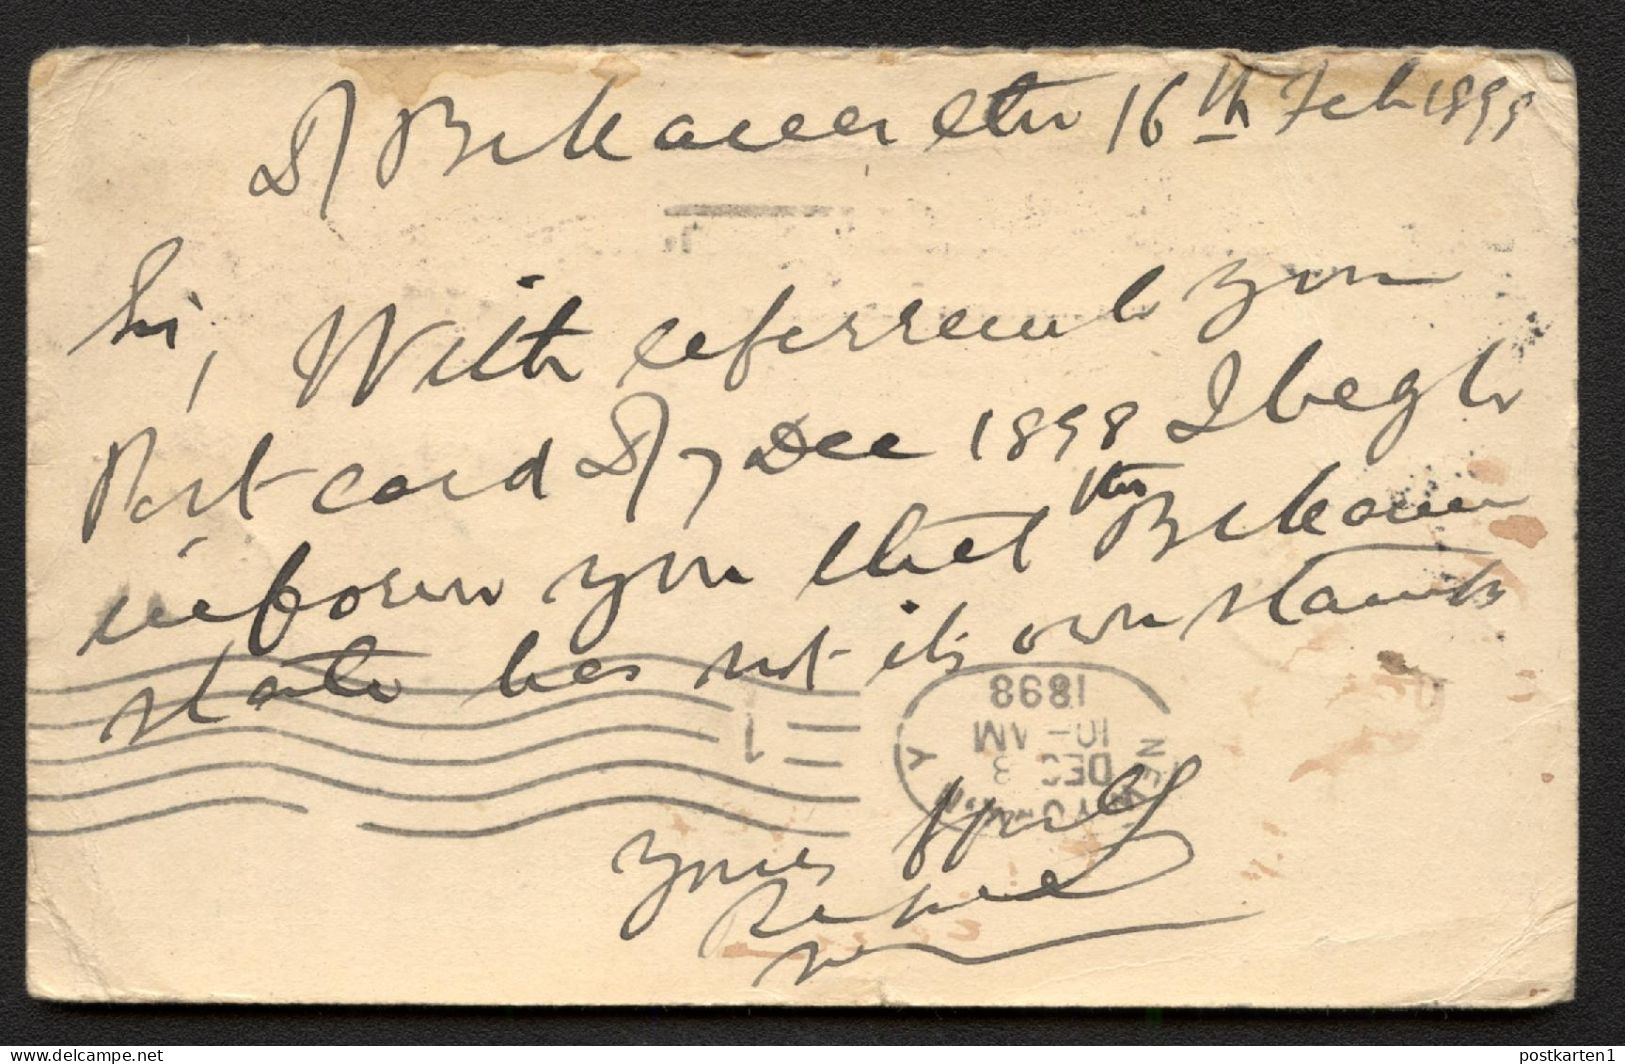 D/ Bikaneer the 16th Feb 1899
Sir, With reference to your
Post card D/ 7 Dec 1898 I beg to
inform you that the Bikaneer
State has not its own stamps
1
1898
10-AM
DEC 8
NEW YO Y
yours
delcampe.net
postkarten1